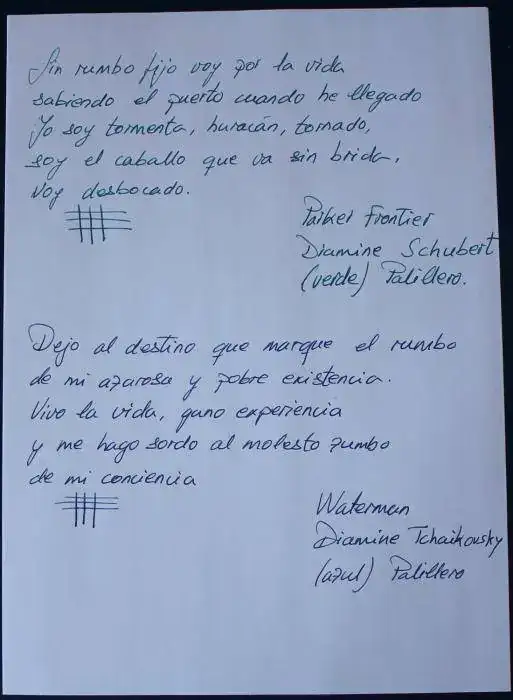 Sin rumbo fijo voy por la vida
sabiendo el puerto cuando he llegado
Yo soy tormenta, huracán, tornado,
soy el caballo que va sin brida,
voy desbocado.
Parker Frontier
Diamine Schubert
(verde) Palillero.
Dejo al destino que marque el rumbo
de mi azarosa y pobre existencia.
Vivo la vida, gano experiencia
y me hago sordo al molesto zumbo
de mi conciencia
Waterman
Diamine Tchaikovsky
(azul) Palillero